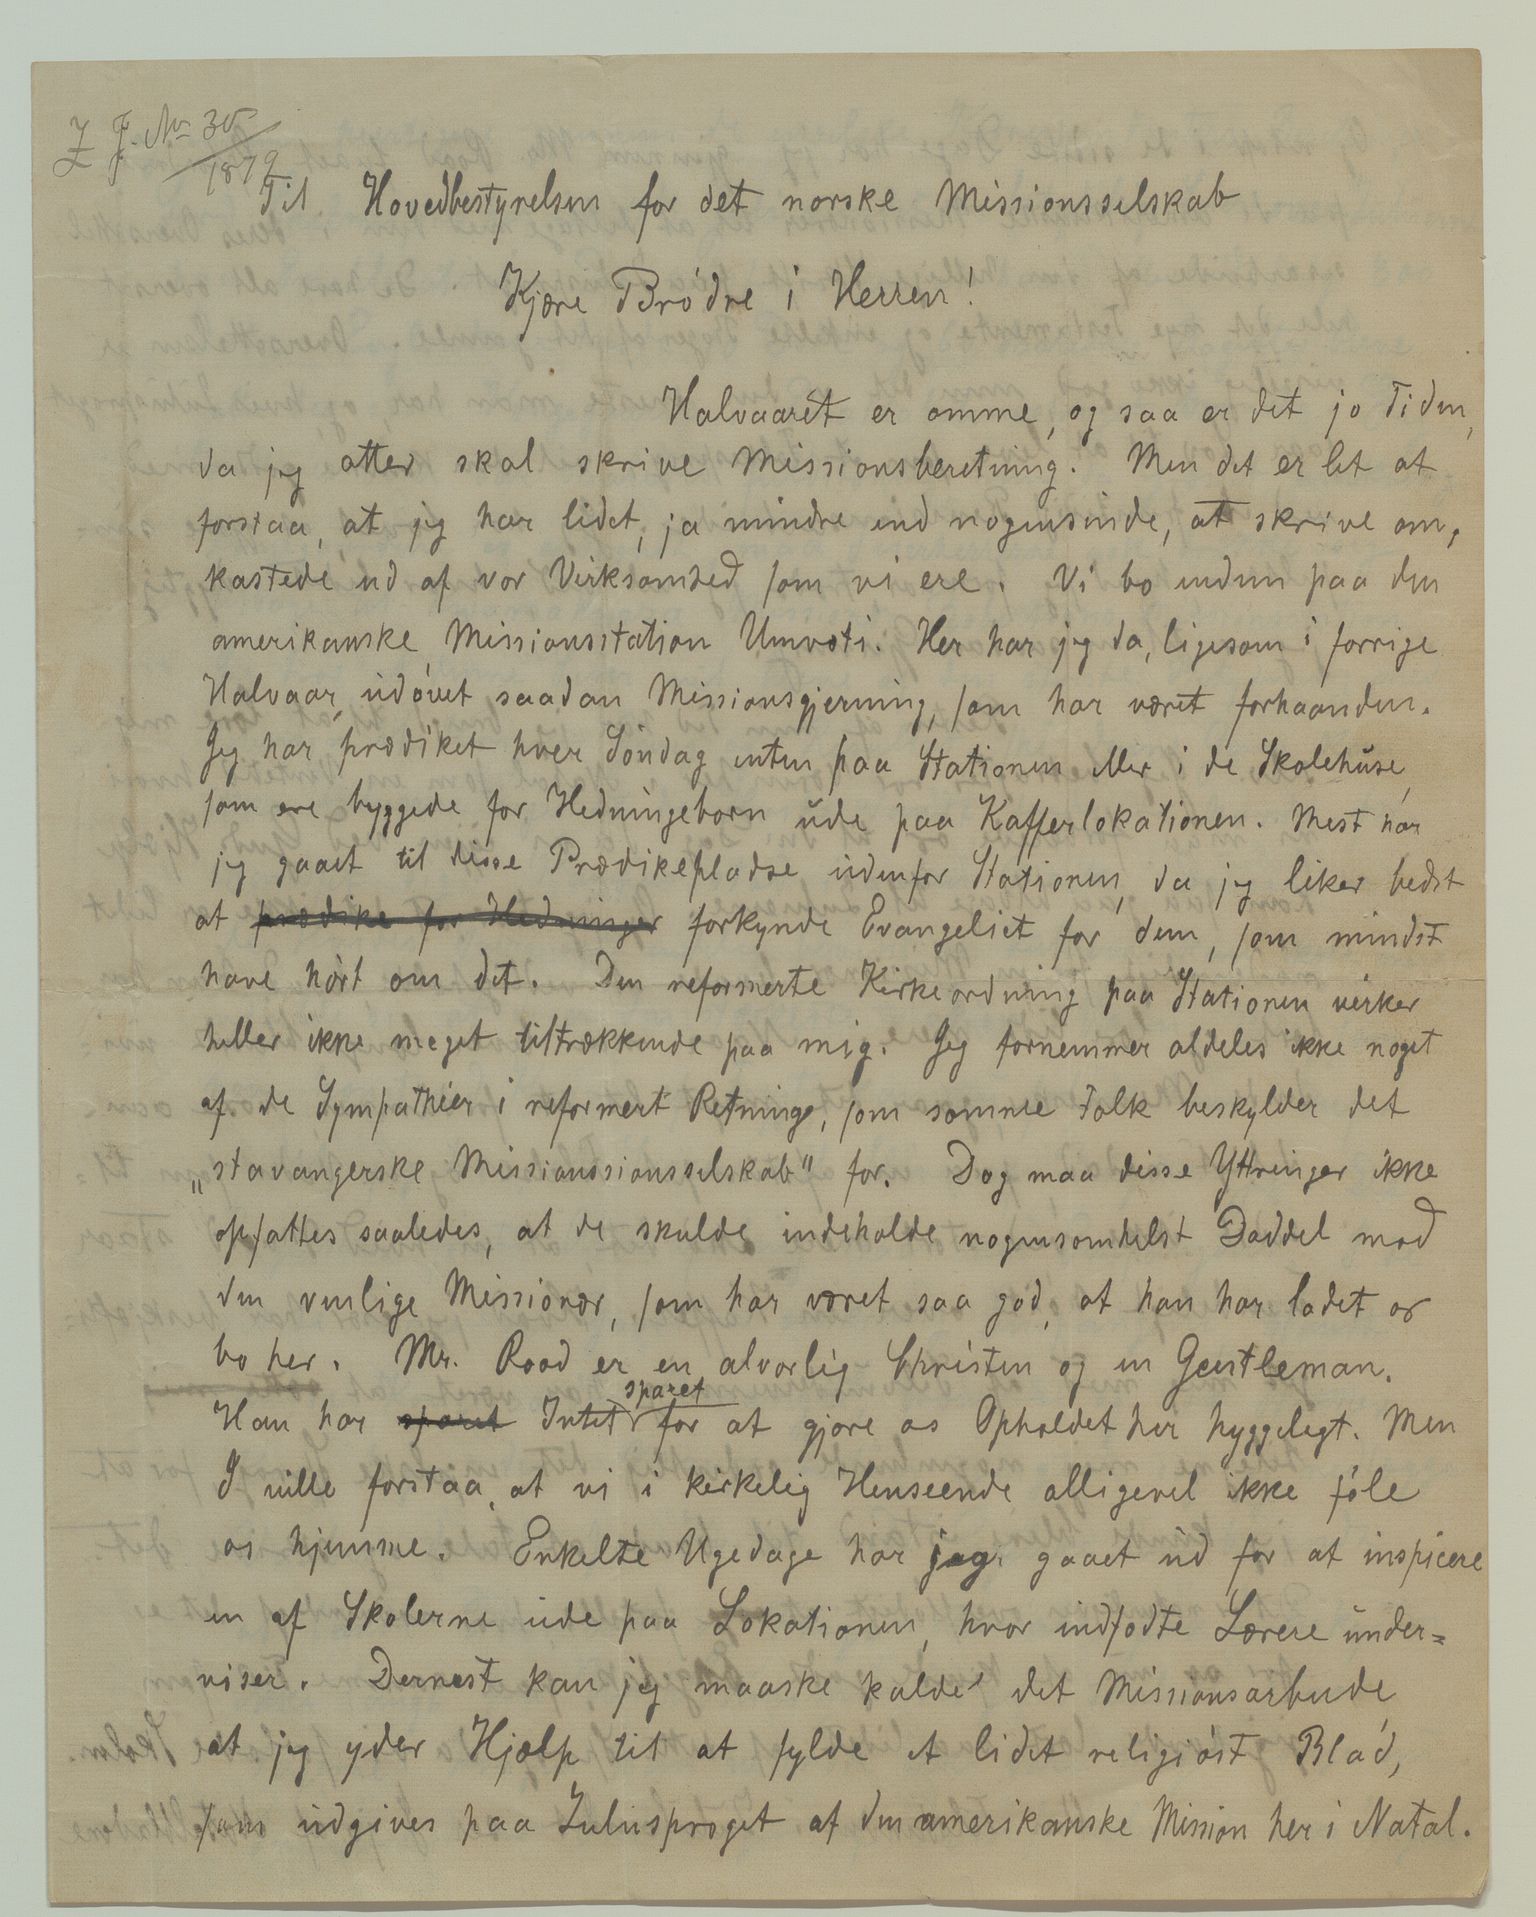 Z. J. No 35
1879
Til Hovedbestyrelsen for det norske Missionsselskab
Kjære Brødre i Herren!
Halvaaret er omme, og saa er det jo Tiden,
da jeg atter skal skrive Missionsberetning. Men det er let at
forstaa, at jeg har lidet, ja mindre end nogensinde, at skrive om,
kastede ud af vor Virksomhed som vi ere. Vi bo endnu paa den
amerikanske Missionsstation Umvoti. Her har jeg da, ligesom i forrige
Halvaar, udøvet saadan Missionsgjerning, som har været forhaanden.
Jeg har prædiket hver Søndag enten paa Stationen eller i de Skolehuse,
som ere byggede for Hedningeborn ude paa Kafferlokationen. Mest har
jeg gaaet til disse Prædikepladse udenfor Stationen, da jeg liker bedst
at prædike for Hedninger forkynde Evangeliet for dem, som mindst
have hørt om det. Den reformerte Kirkeordning paa Stationen virker
heller ikke meget tiltrækkende paa mig. Jeg fornemmer aldeles ikke noget
af de Sympathier i reformert Retning, som somme Folk beskylder det
„stavangerske Missionssionsselskab" for. Dog maa disse Yttringer ikke
opfattes saaledes, at de skulde indeholde nogensomhelst Daddel mod
den venlige Missionær, som har været saa god, at han har ladet os
bo her. Mr. Rood er en alvorlig Christen og en Gentleman.
Han har sparet Intet sparet for at gjøre os Opholdet her hyggeligt. Men
I ville forstaa, at vi i kirkelig Henseende alligevel ikke føle
os hjemme. Enkelte Ugedage har jeg gaaet ud for at inspicere
en af Skolerne ude paa Lokationen, hvor indfødte Lærere under=
viser. Dernest kan jeg maaske kalde det Missionsarbeide,
at jeg yder Hjælp til at fylde et lidet religiøst Blad,
som udgives paa Zulusproget af den amerikanske Mission her i Natal.